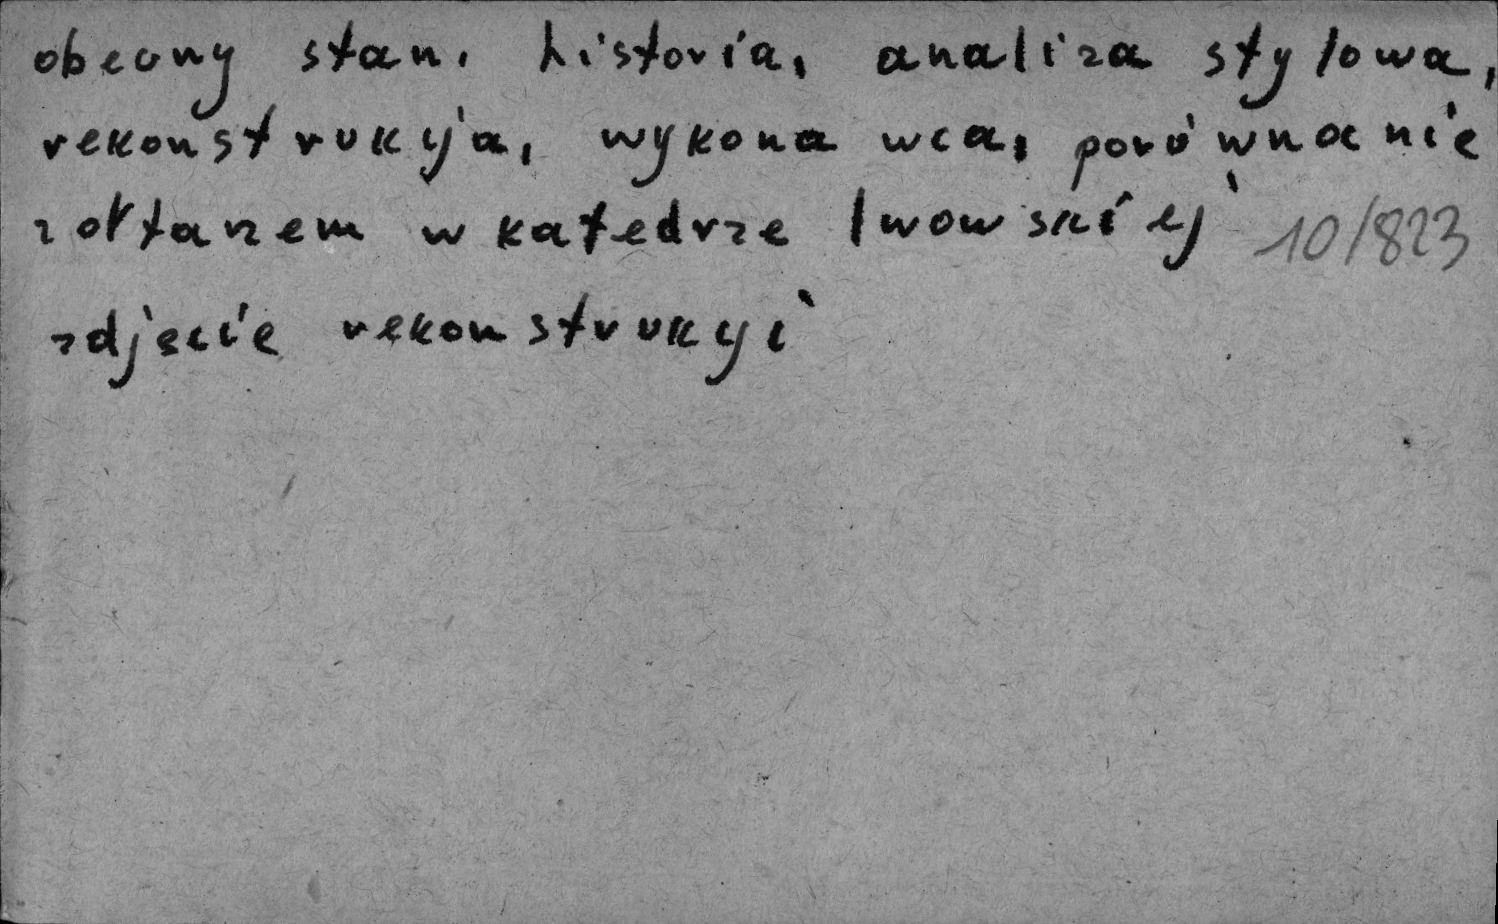 obecny stan, historia, analiza stylowa,
rekonstrukcja, wykonawca, porównanie
z ołtarzem w katedrze lwowskiej 10/823
zdjęcie rekonstrukcji